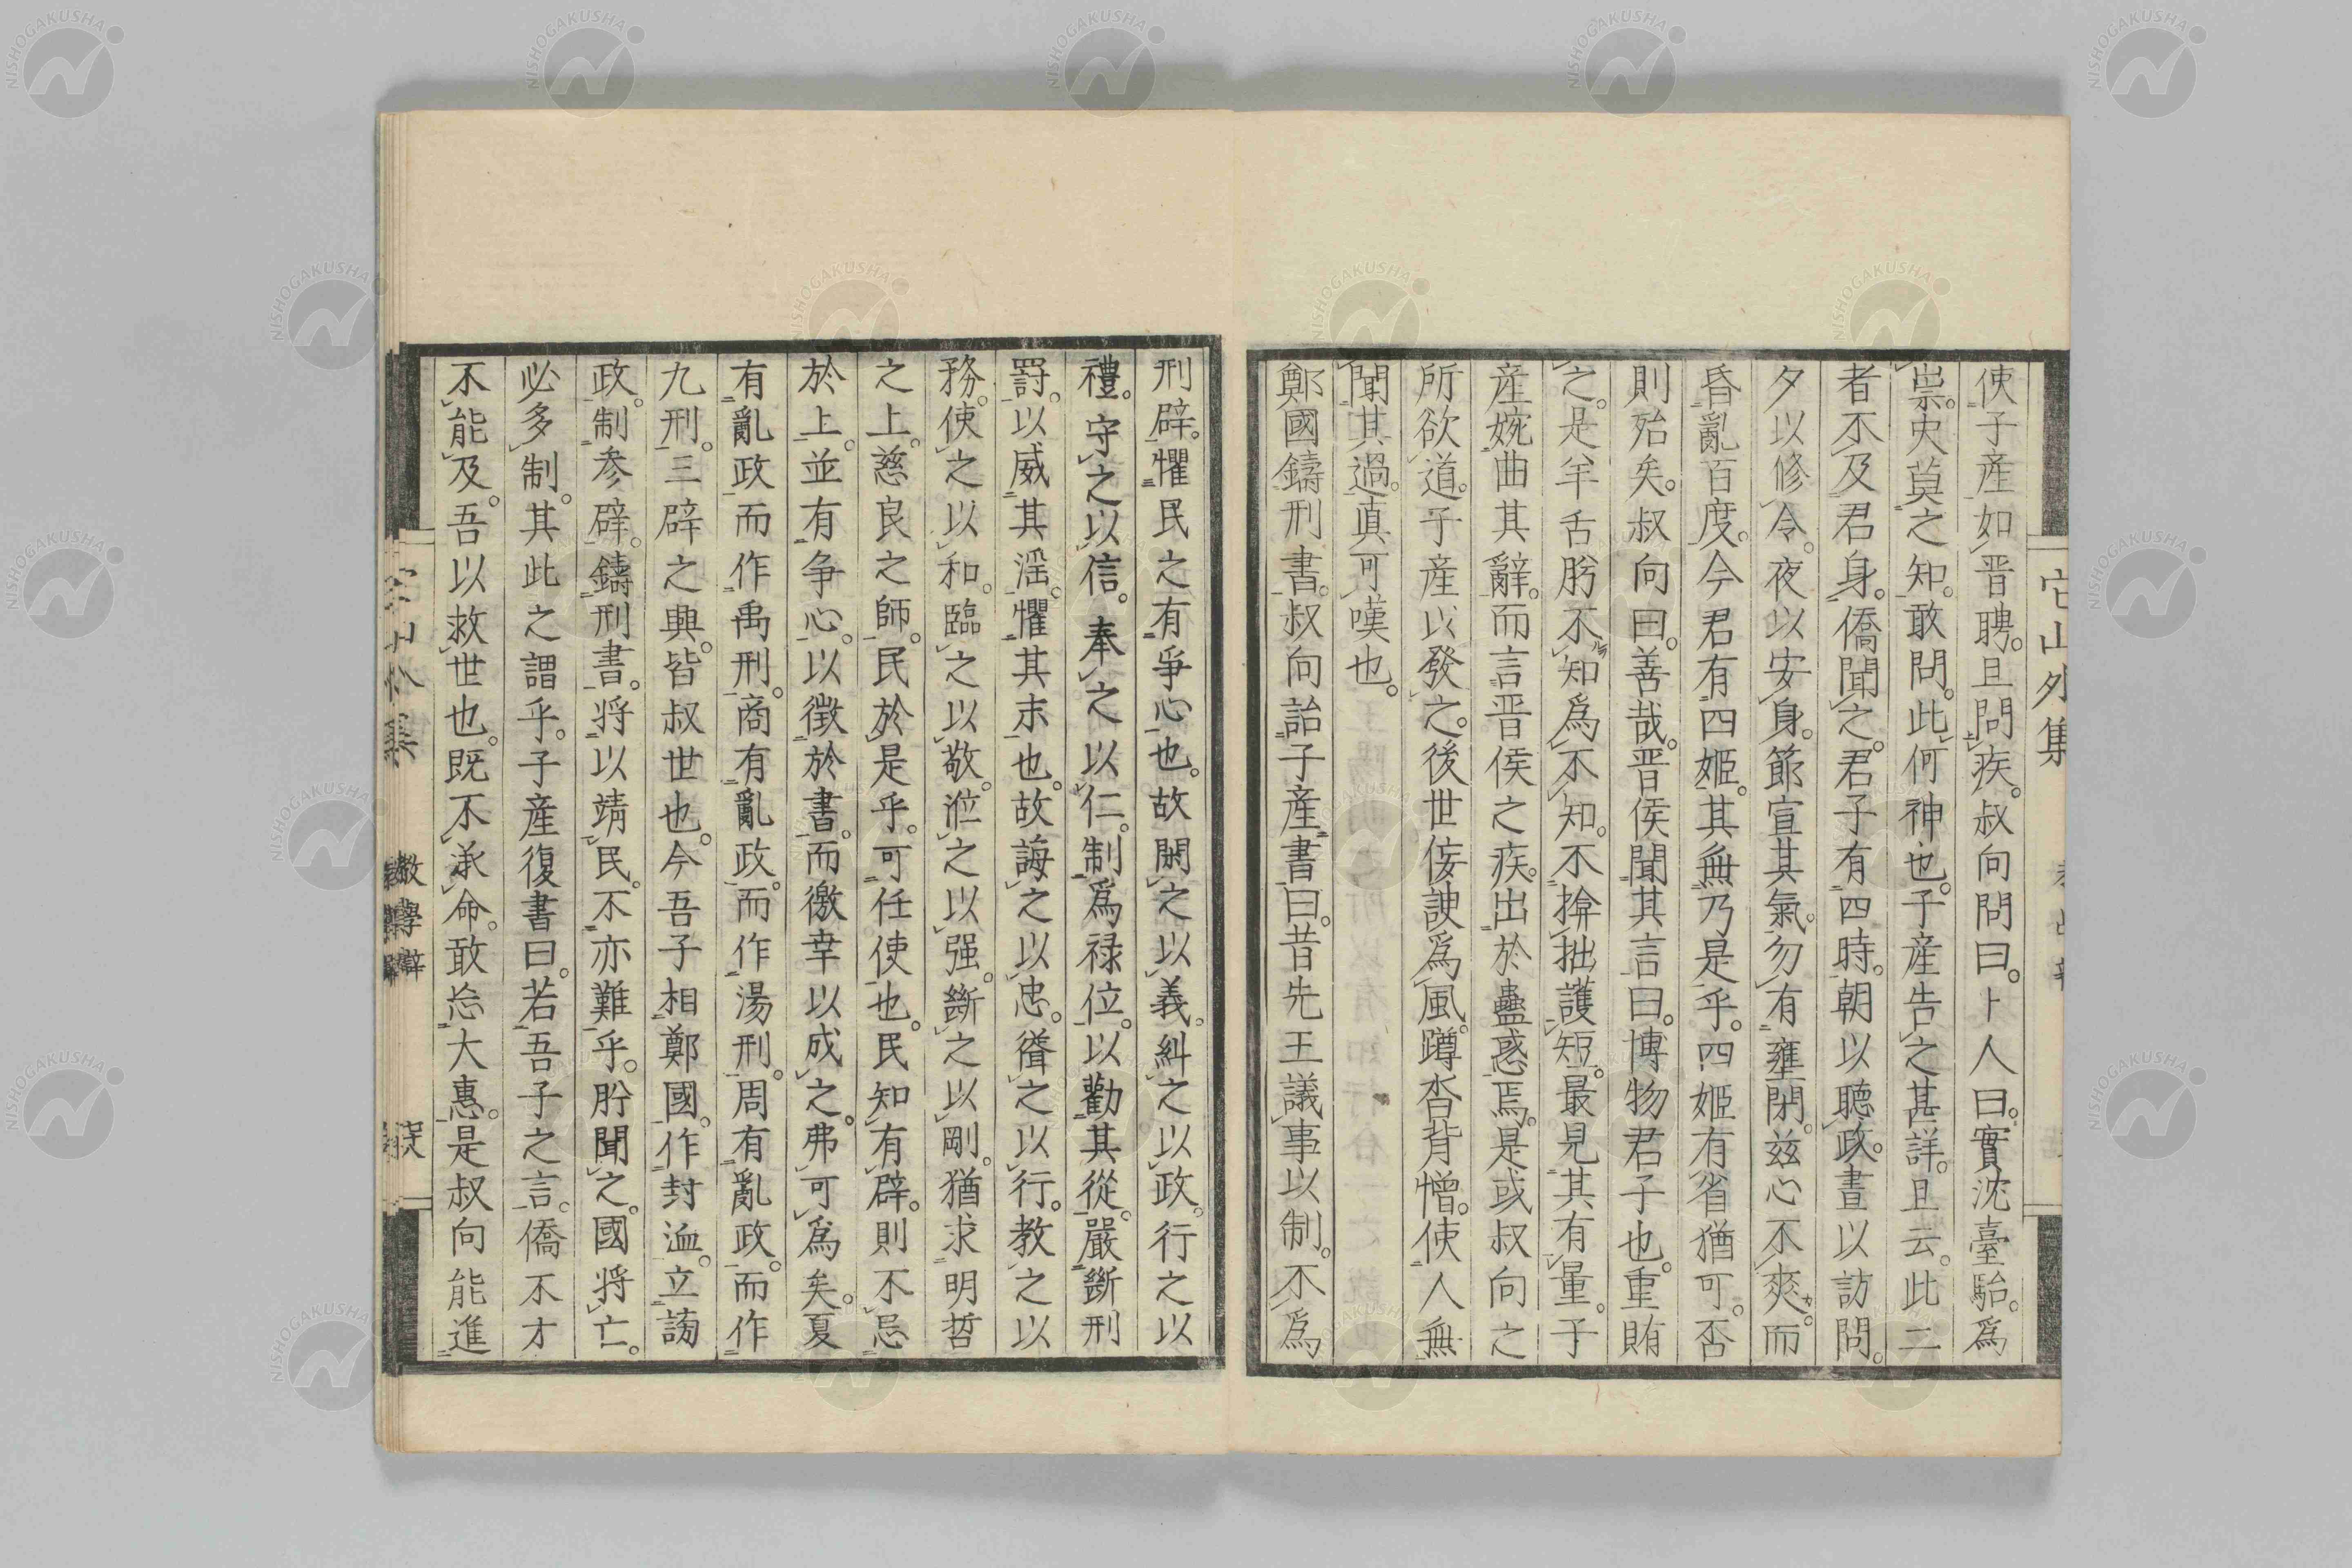 使子産如晋聘。且問疾。叔向問曰。卜人曰。實沈臺駘。爲
祟。史莫之知。敢問。此何神也。子産告之甚詳。且云。此二
者不及君身。僑聞之。君子有四時。朝以聽政。晝以訪問。
夕以修令。夜以安身。節宣其氣。勿有壅閉。兹心不爽。而
昏亂百度。今君有四姬。其無乃是乎。四姬有省猶可。否
則殆矣。叔向曰。善哉。晋侯聞其言曰。博物君子也。重賄
之。是羊舌肹不知爲不知。不揜拙護短。最見其有量。子
産婉曲其辭。而言晋侯之疾。出於蠱惑焉。是或叔向之
所欲道。子産以發之。後世佞諛爲風。蹲沓背憎。使人無
聞其過。真可嘆也。
鄭國鑄刑書。叔向詒子産書曰。昔先王議事以制。不爲
刑辟。懼民之有爭心也。故閑之以義。糾之以政。行之以
禮。守之以信。奉之以仁。制爲禄位。以勸其從。嚴斷刑
罰。以威其淫。懼其未也。故誨之以忠。聳之以行。教之以
務。使之以和。臨之以敬。涖之以强。斷之以剛。猶求明哲
之上。慈良之師。民於是乎。可任使也。民知有辟。則不忌
於上。並有争心。以徵於書。而徼幸以成之。弗可爲矣。夏
有亂政而作禹刑。商有亂政。而作湯刑。周有亂政。而作
九刑。三辟之興。皆叔世也。今吾子相鄭國。作封洫。立謗
政。制参辟。鑄刑書。将以靖民。不亦難乎。肸聞之。國将亡。
必多制。其此之謂乎。子産復書曰。若吾子之言。僑不才
不能及。吾以救世也。既不承命。敢忘大惠。是叔向能進
它山外集
教學辯
NISHOGAKUSHA